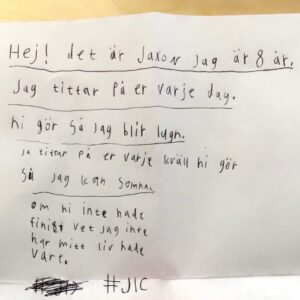 Hej! det är Jaxon jag är 8 år.
Jag tittar på er varje dag.
ni gör så jag blir lugn.
ja tittar på er varje kväll ni gör
så jag kan somna.
om ni inte hade
finist vet jag inte
hur mitt liv hade
vart.
#JIC